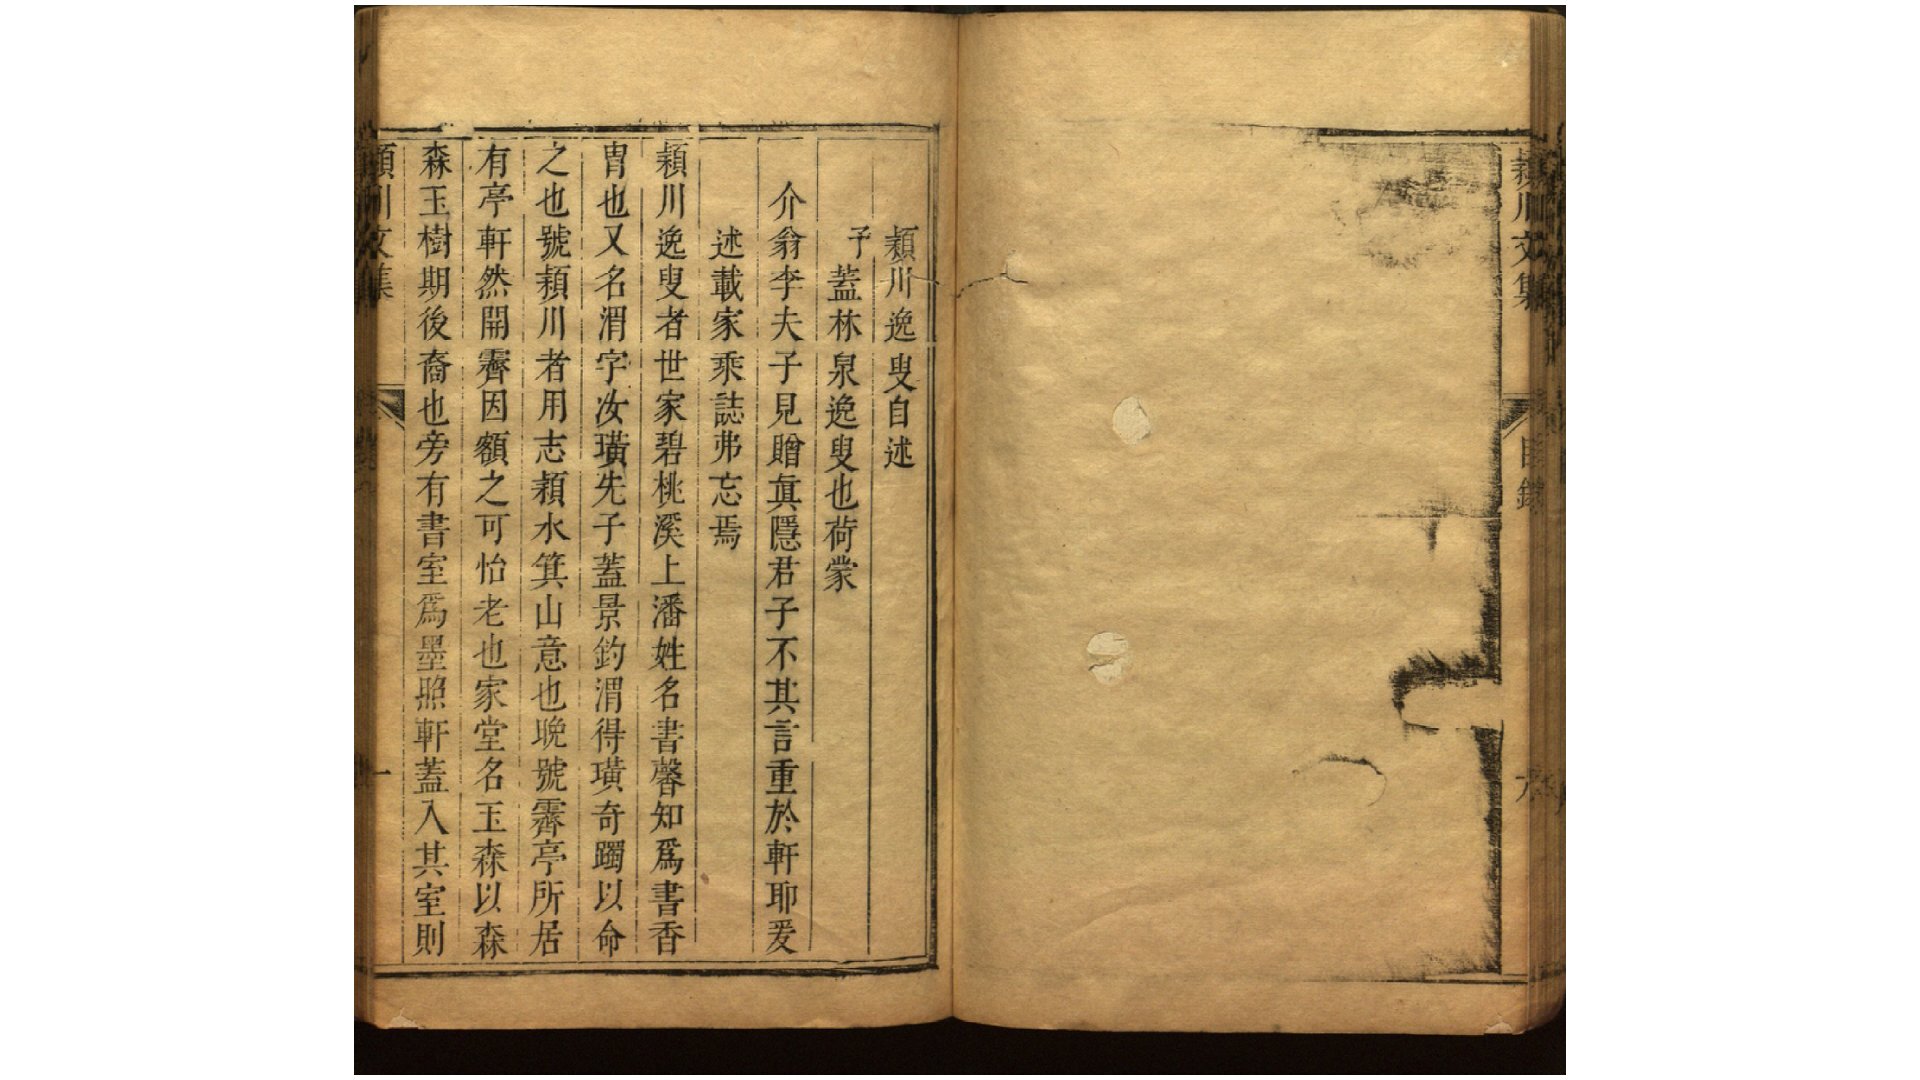 潁川文集
目錄
六
潁川逸叟自述
予蓋林泉逸叟也荷蒙
介翁李夫子見贈眞隱君子不其言重於軒耶爰
述載家乘誌弗忘焉
潁川逸叟者世家碧桃溪上潘姓名書馨知爲書香
胄也又名渭字汝璜先子蓋景釣渭得璜奇躅以命
之也號潁川者用志潁水箕山意也晚號霽亭所居
有亭軒然開霽因額之可怡老也家堂名玉森以森
森玉樹期後裔也旁有書室爲墨照軒蓋入其室則
潁川文集
一